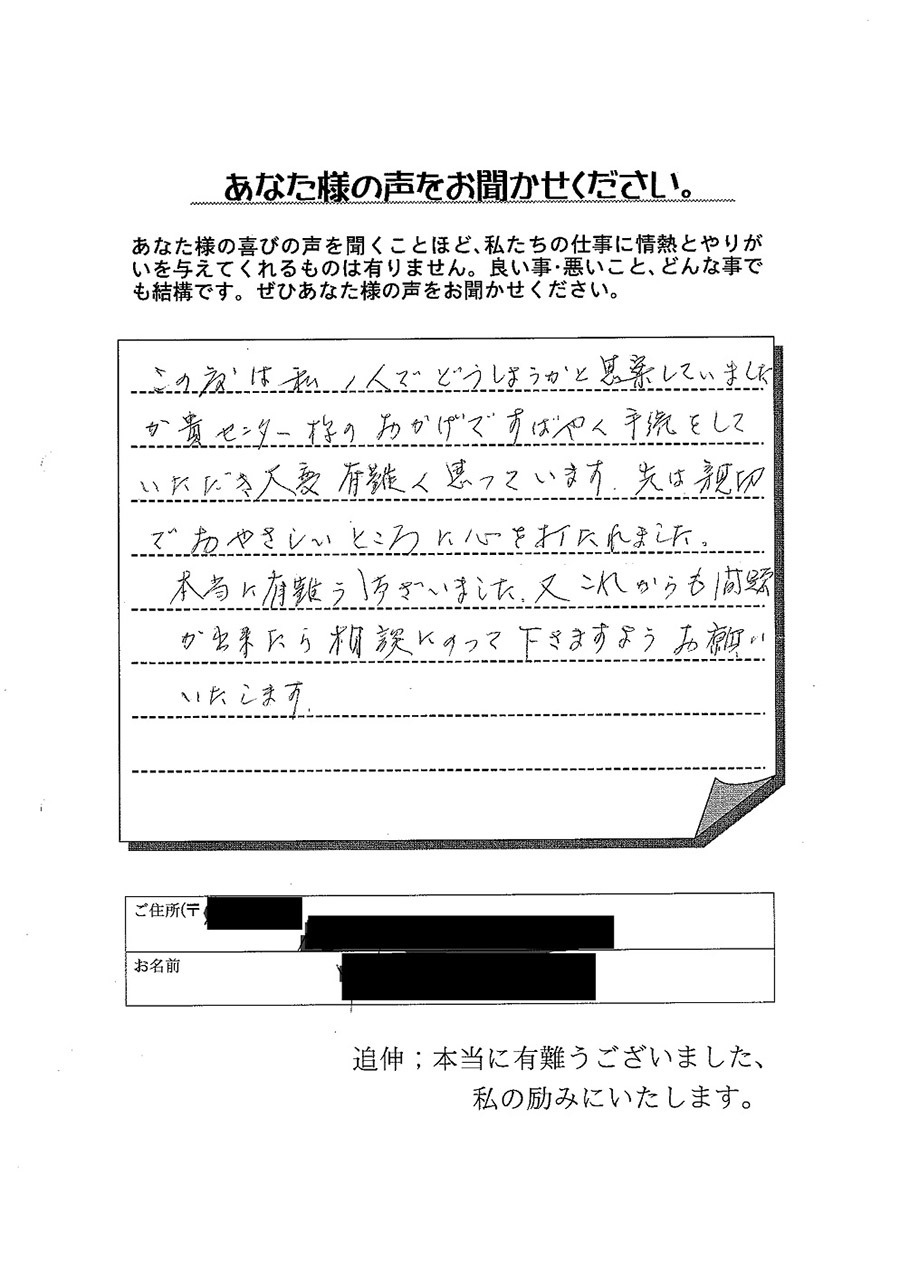 あなた様の声をお聞かせください。
あなた様の喜びの声を聞くことほど、私たちの仕事に情熱とやりが
いを与えてくれるものは有りません。良い事・悪いこと、どんな事で
も結構です。ぜひあなた様の声をお聞かせください。
この度は私1人でどうしようかと思案していました
が貴センター様のおかげですばやく手続をして
いただき大変有難く思っています。先は親切
でおやさしいところに心を打たれました。
本当に有難うございました。又これからも問題
が出来たら相談にのって下さますようお願い
いたします。
ご住所(〒
お名前
追伸;本当に有難うございました、
私の励みにいたします。